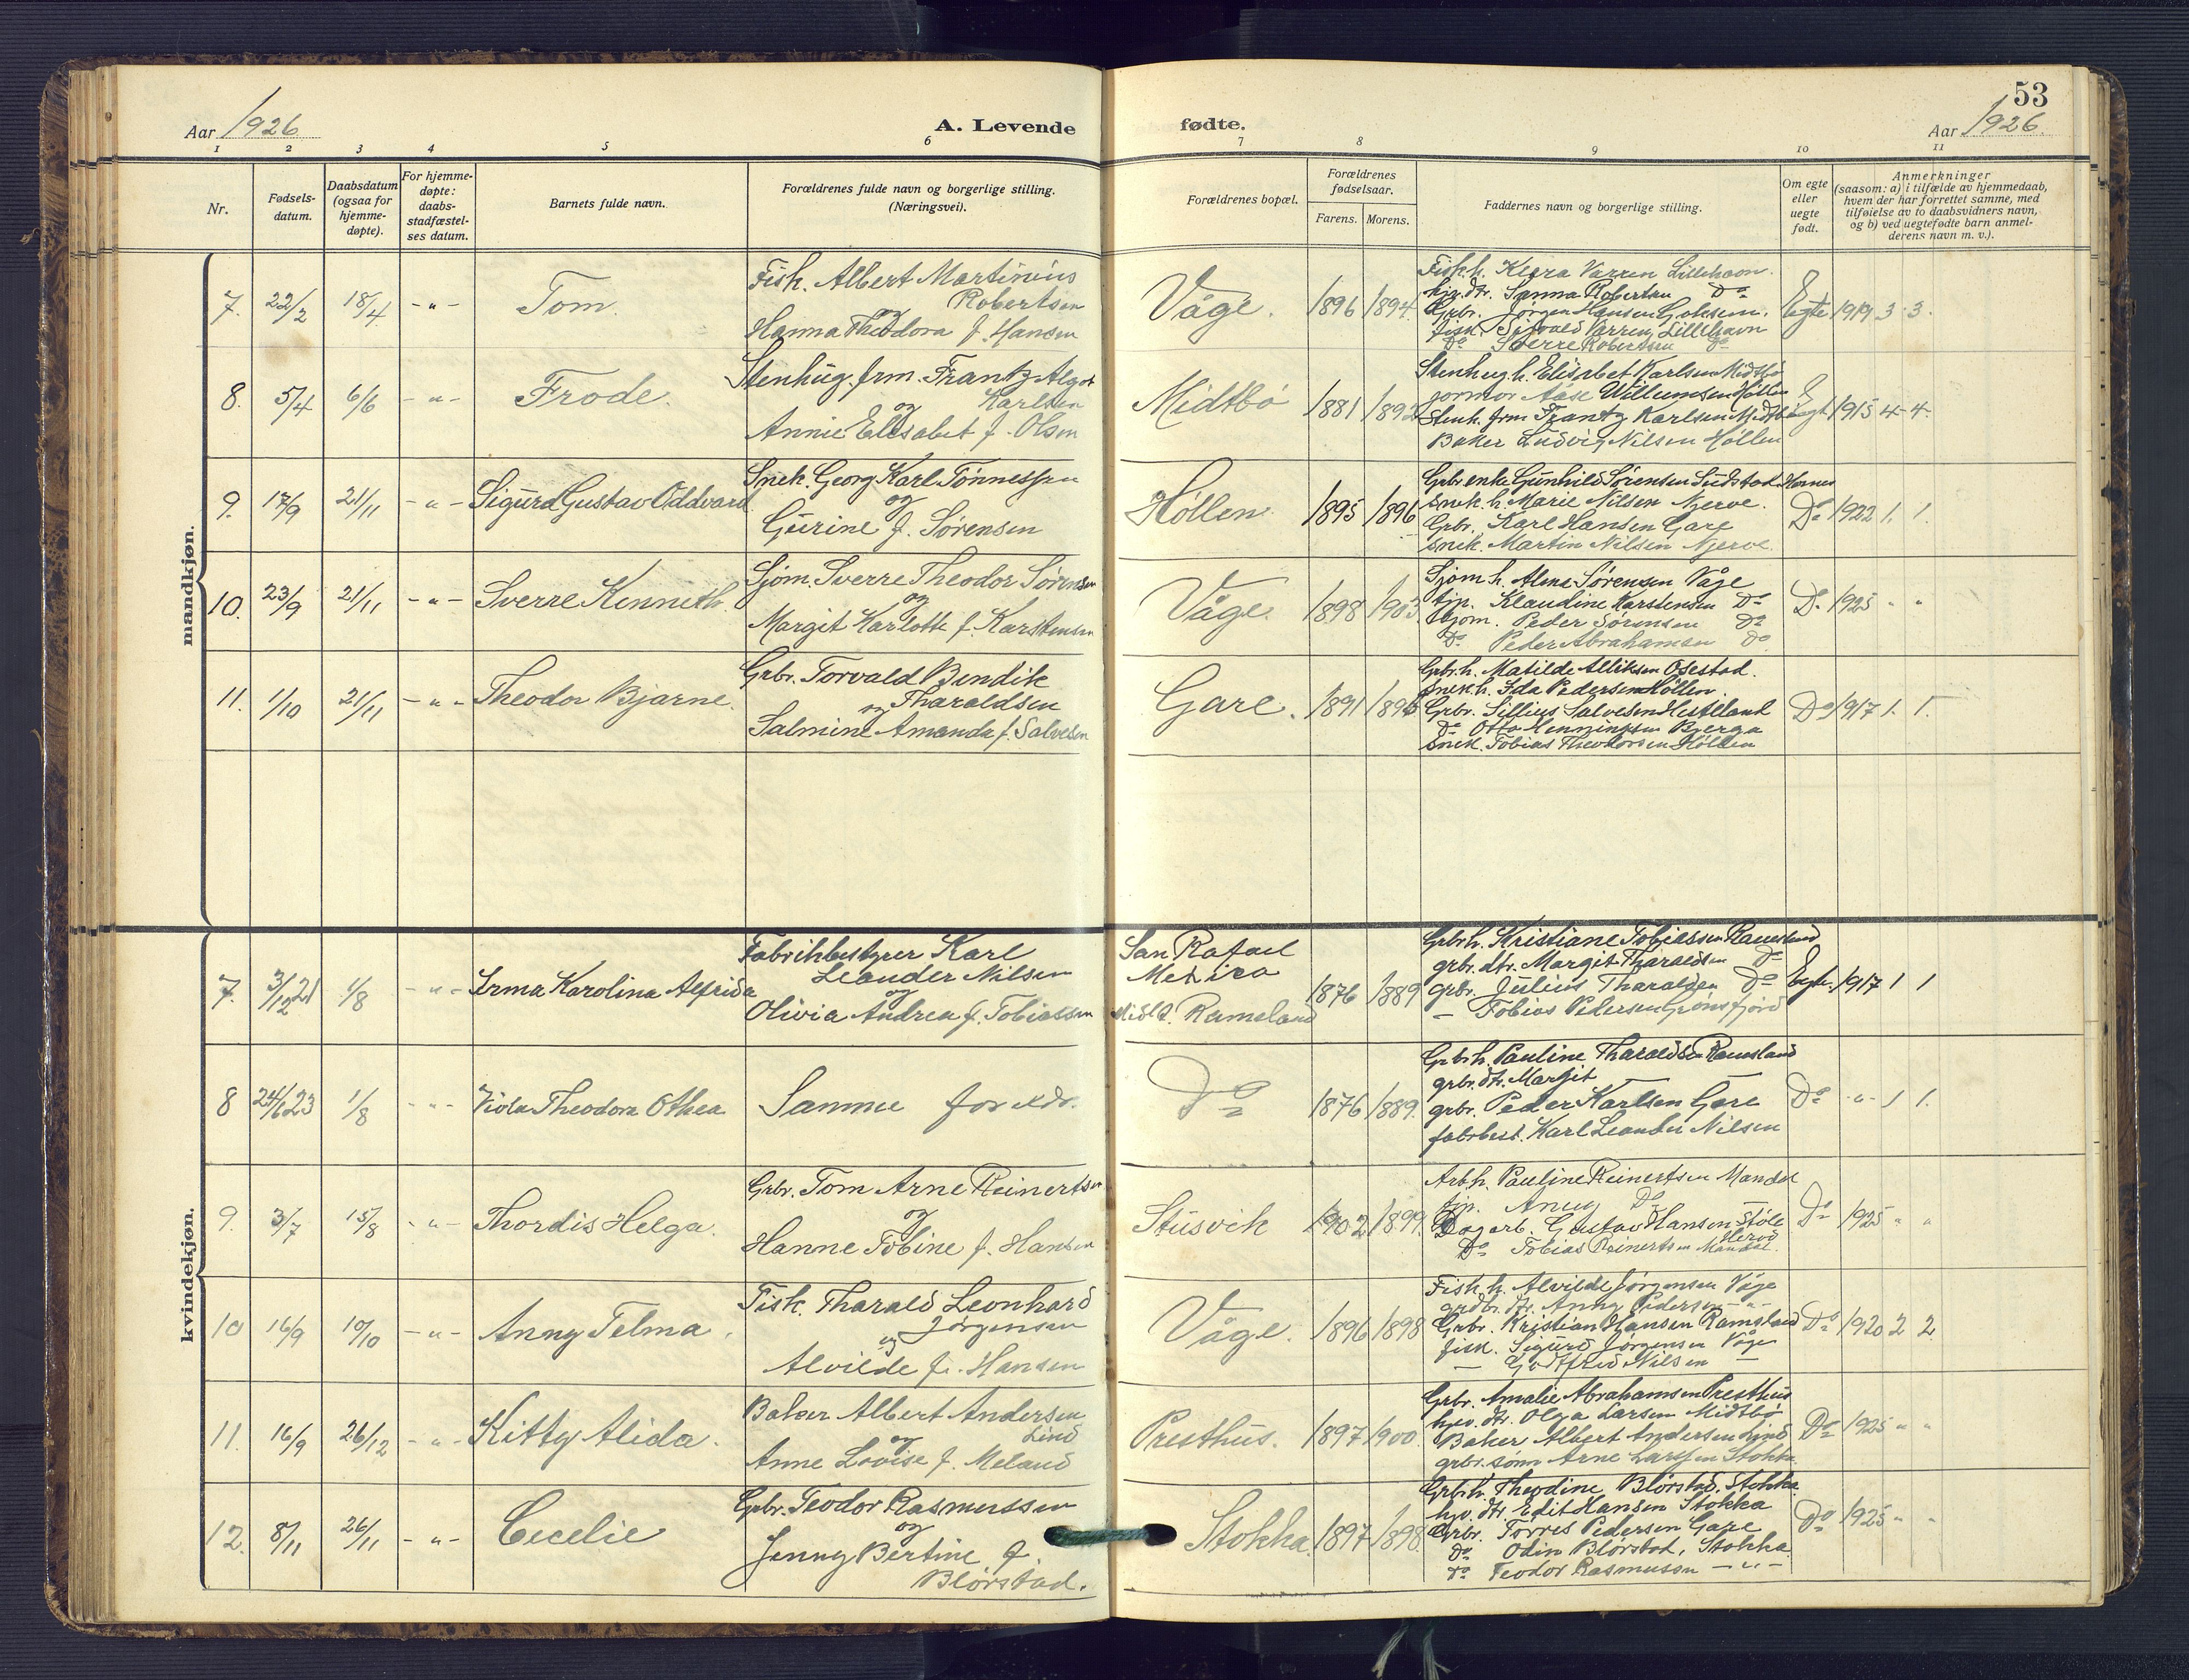 53
Aar 1926
A. Levende
fødte.
Aar 1926.
1 2 3 4 5 6 7 8 9 10 11
Nr.
Fødsels-
datum.
Daabsdatum
(ogsaa for
hjemme-
døpte).
For hjemme-
døpte:
daabs-
stadfæstel-
ses datum.
Barnets fulde navn.
Forældrenes fulde navn og borgerlige stilling.
(Næringsvei).
Forældrenes bopæl.
Forældrenes
fødselsaar.
Farens. Morens.
Faddernes navn og borgerlige stilling.
Om egte
eller
uegte
født.
Anmerkninger
(saasom: a) i tilfælde av hjemmedaab,
hvem der har forrettet samme, med
tilføielse av to daabsvidners navn,
og b) ved uegtefødte barn anmel-
derens navn m. v.).
mandkjøn.
7. 22/2 18/4 - " - Tom.
Fisk. Albert Martinius
Robertsen
og
Hanna Theodora f. Hansen
Våge. 1896 1894.
Fiskh. Klara Varren Lillehavn.
Sanna Robertsen Do
Grbr. Jørgen Hansen
fisk. Sigvald Varren, Lillehavn
Do Sverre Robertsen Do
Egte 1919 3 3.
8. 5/4 6/6 - " - Frode.
Stenhug.frm. Frantz Algot
Karlsen
og
Annie Elisabet f. Olsen
Midtbø 1881 1892
Stenhug.h. Elisabet Karlsen Midtbø
jormor Aase Willumsen Høllen
Stenh. frm Frantz Karlsen Midtbø
Baker Ludvig Nilsen Høllen
Egt. 1915 4 - 4.
9. 17/9 21/11 - " - Sigurd Gustav Oddvard
Snek. Georg Karl Tønnessen
og
Gurine f. Sørensen
Høllen 1895 1896
Grbr enke Gunhild Sørensen Sudstad Homer
Snek. h. Marie Nilsen Njerve.
Grbr. Karl Hansen Gare
Snek. Martin Nilsen Njerve.
Do 1922 1. 1.
10. 23/9 21/11 - " - Sverre Kenneth.
Sjøm. Sverre Theodor Sørensen
og
Margit Karlotte f. Karstensen
Våge. 1898 1903.
Sjømh. Alma Sørensen Våge
tjp. Klaudine Karstensen Do
Sjøm. Peder Sørensen Do
Do Peder Abrahamsen Do
Do 1925 " "
11. 1/10 21/11 - " - Theodor Bjarne.
Grbr. Torvald Bendik
Tharaldsen
og
Salmine Amanda f. Salvesen
Gare. 1891 1896
Grbr.h. Matilde Olsestad.
Snek.h. Ida Pedersen Høllen.
Grbr. Sillius Salvesen
Do Otto Henningsen Bjerga
Snek. Tobias Theodorsen Høllen
Do 1917 1. 1.
kvindekjøn.
7. 3/12 21 1/8 - " - Irma Karolina Alfrida
Fabrikbestyrer Karl
Leander Nilsen
og
Olivia Andrea f. Tobiassen
San Rafael
Mexico
Midlt. Ramsland
1876 1889
Grbrh. Kristiane Tobiassen Ramsland
grbr. dtr. Margit Tharaldsen Do
grbr. Julius Tharaldsen Do
— Tobias Pedersen Grønsfjord
Egte. 1917 1 1
8 24/1 23 1/8 - " - Viola Theodora Othea
Samme forældr.
Do 1876 1889.
Grbrh. Pauline Tharaldsen Ramsland
grbr. dtr. Margit
grbr. Peder Karlsen Gare
fabrbest. Karl Leander Nilsen
Do - " - 1 1.
9. 3/7 15/8 - " - Thordis Helga.
Grbr. Tom Arne Reinertsen
og
Hanne Tobine f. Hansen
Stusvik 1902 1899.
Arbh. Pauline Reinertsen Mandal
tjp. Anny Do
Dagarb. Gustav Hansen Støle
Do Tobias Reinertsen Mandal.
Do 1925 " "
10 16/9 10/10 - " - Anny Telma.
Fisk. Tharald Leonhard
Jørgensen
og
Alvilde f. Hansen
Våge. 1896 1898
Fisk.h. Alvilde Jørgensen Våge
grdbr. dtr. Anny Pedersen - " -
Grbr. Kristian Hansen Ramsland
fisk. Sigurd Jørgensen Våge
— Godtfred Nilsen —
Do 1920 2 2
11. 16/9 26/12 - " - Kitty Alida.
Baker Albert Andersen
Lind
og
Anne Lovise f. Meland
Presthus. 1897 1900.
Grbr. Amalie Abrahamsen Presthus
hjv. dtr. Olga Larsen Midtbø
Baker Albert Andersen Lind
grbr. sønn Arne Larsen Stokka
Do 1925 " "
12. 8/11 26/11 - " - Cecelie
Grbr. Teodor Rasmussen
og
Jenny Bertine f.
Blørstad.
Stokka. 1897 1898.
Grbrh. Theodine Blørstad, Stokka
hjv. dtr. Edit Hansen Stokka
Grbr. Torris Pedersen Gare
Do Odin Blørstad, Stokka
Do Teodor Rasmussen - " -
Do 1925 " "